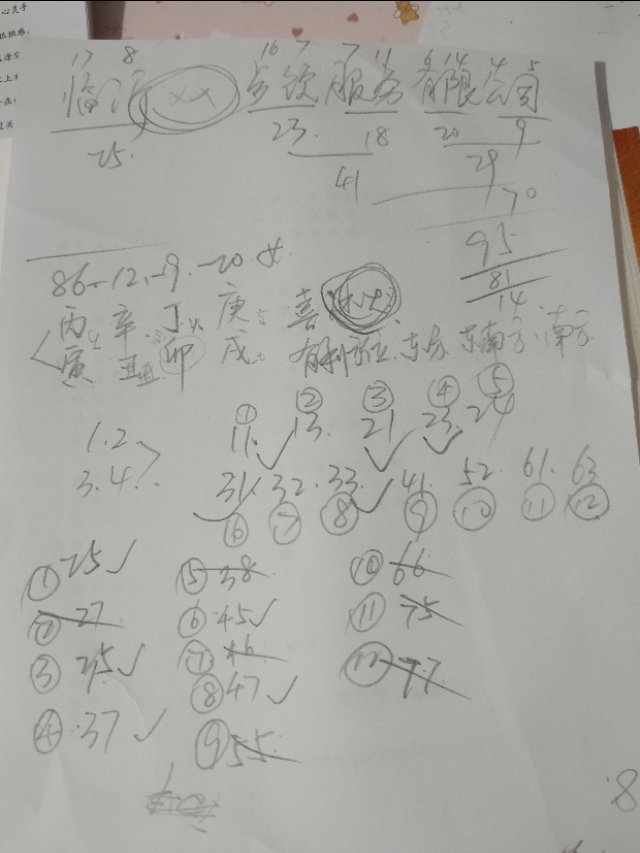 17 8 16 7 7 11 6 14 4 5
临沂 XX 餐饮服务有限公司
25. 23. 18 20 9
41 29
70
95
81
14
86-12-9-20 女
丙 辛 丁火 庚 喜
寅 丑 卯 戌土 有利方位 东方 东南方 南方
① ② ③ ④ ⑤
1.2 11. 13. 21 23. 24
3.4 31. 32. 33. 41. 52. 61. 63
⑥ ⑦ ⑧ ⑨ ⑩ ⑪ ⑫
① 25 ✓ ⑤ 38 ⑩ 66
② 27 ⑥ 45 ✓ ⑪ 75
③ 35 ✓ ⑦ 46 ⑫ 77
④ 37 ✓ ⑧ 47 ✓
⑨ 55
8